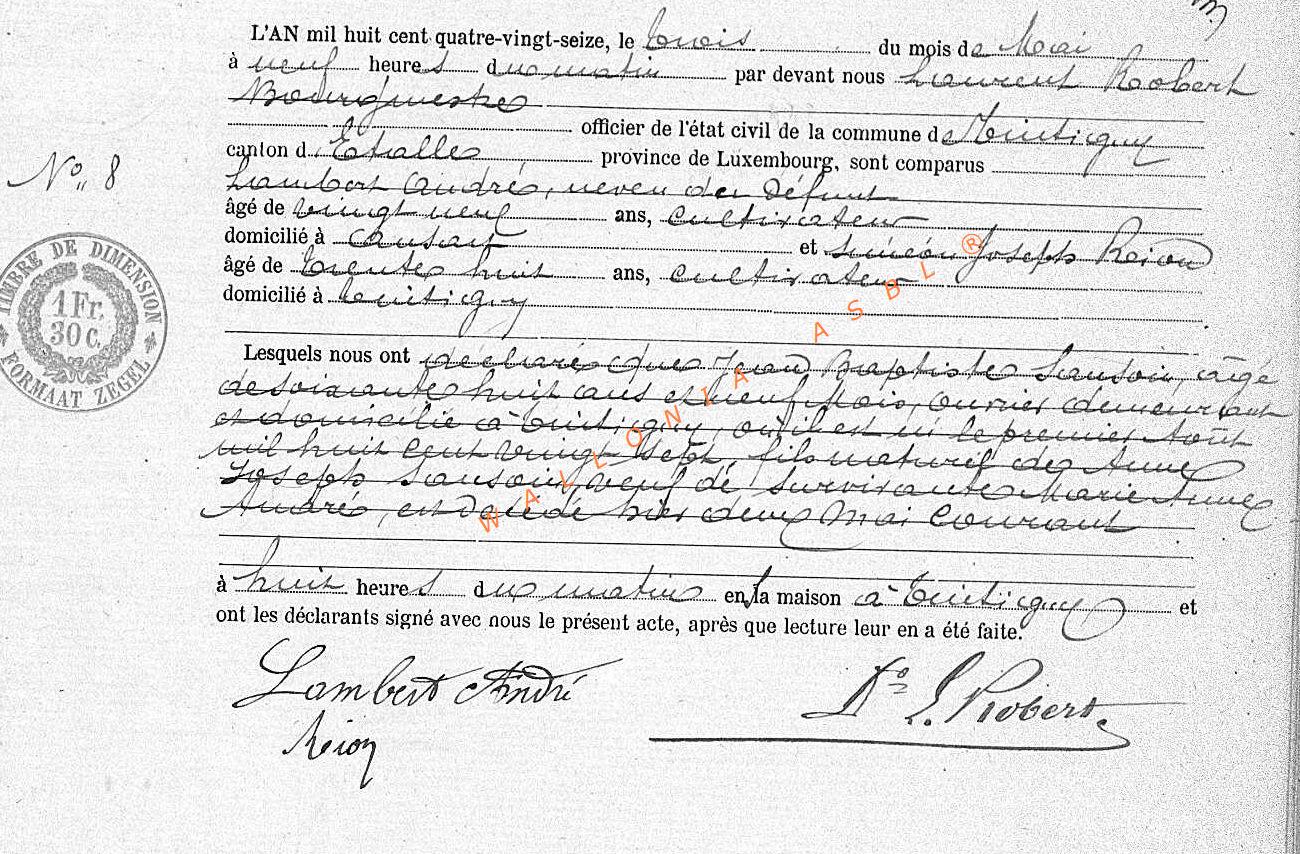 L'AN mil huit cent quatre-vingt-seize, le trois du mois de Mai
à neuf heures du matin par devant nous Laurent Robert
Bourgmestre
officier de l'état civil de la commune de Tintigny
N° 8
canton d'Etalle province de Luxembourg, sont comparus
Lambert André, neveu du défunt
âgé de vingt neuf ans, cultivateur
domicilié à Ansart et Siméon Joseph Reion
âgé de trente huit ans, cultivateur
domicilié à tintigny
TIMBRE DE DIMENSION
1 Fr.
30 C.
FORMAAT ZEGEL
Lesquels nous ont déclaré que Jean Baptiste Sansoin, âgé
de soixante huit ans et neuf Mois, ouvrier demeurant
et domicilié à tintigny, où il est né le premier Août
mil huit cent vingt sept, fils naturel de Anne
Joseph Sansoin, veuf de survivante Marie Anne
André, est décédé hier deux Mai courant
à huit heures du matin en la maison à tintigny et
ont les déclarants signé avec nous le présent acte, après que lecture leur en a été faite.
Lambert André
Reion
L. Robert
WALLONIA ASBL ®